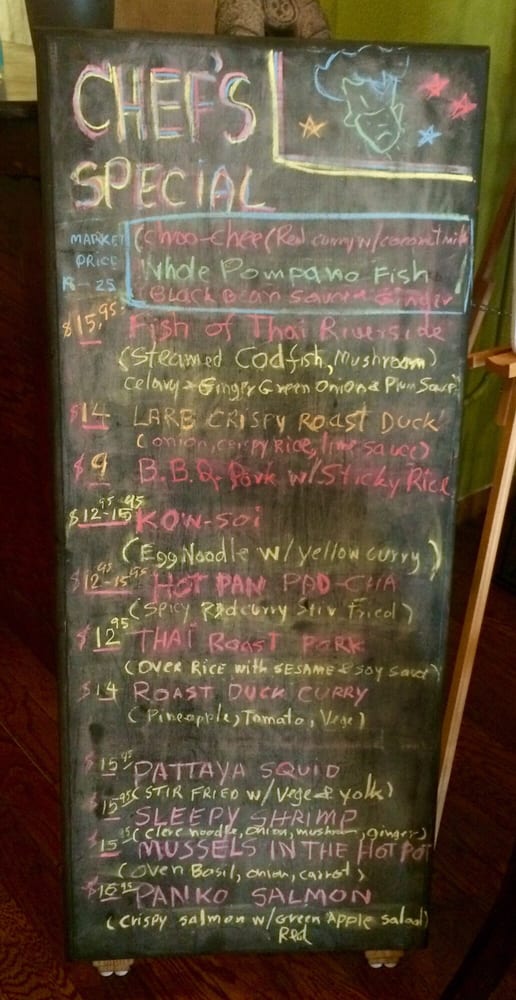 CHEF'S
SPECIAL
MARKET
PRICE
(Choo-chee (Red curry w/coconut milk
Whole Pompano Fish
(Black Bean Sauce Ginger
$15.95 Fish of Thai Riverside
(Steamed Codfish, Mushroom)
Celary & Ginger Green Onion & Plum Sauce
$14 LARB CRISPY ROAST DUCK
(onion, crispy Rice, lime sauce)
$9 B.B.Q Pork w/Sticky Rice
$12.95-15.95 KOW-SOI
(Egg Noodle w/yellow curry)
$12.95-15.95 HOT PAN PAD-CHA
(Spicy Red curry Stir Fried)
$12.95 THAI Roast PORK
(OVER RICE with SESAME & SOY sauce)
$14 ROAST DUCK CURRY
(Pineapple, Tomato, Vege)
$15.95 PATTAYA SQUID
(STIR FRIED w/ Vege & yolk)
$15.95 SLEEPY SHRIMP
(clere noodle, onion, mushrom, ginger)
$15.95 MUSSELS IN THE HOT POT
(Oven Basil, onion, carrot)
$16.95 PANKO SALMON
(crispy salmon w/Green Apple salad)
Red